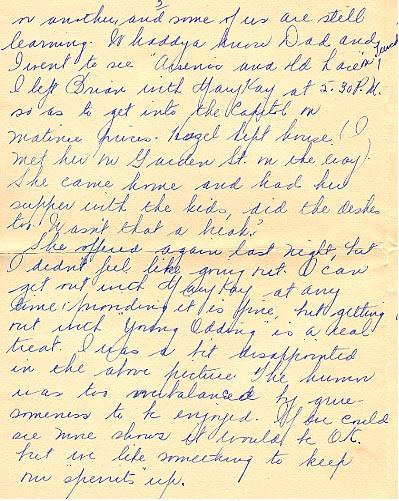 3
or another, and some of us are still
learning. Whaddya know Dad and
I went to see "Arsenic and Old Lace"
I left Brian with MaryKay at 5.30 P.M.
so as to get into the Capitol on
matinee prices. Hazel kept house. (I
met her on Garden St. on the way).
She came home and had her
supper with the kids, did the dishes
too. Wasn't that a break?
She offered again last night, but
I didn't feel like going out. I can
get out with MaryKay at any
time, providing it is fine, but getting
out with "Young Adding" is a real
treat. I was a bit disappointed
in the above picture. The humor
was too unbalanced by grue-
someness to be enjoyed. If we could
see more shows it would be O.K.
but we like something to keep
our "sperrits" up.